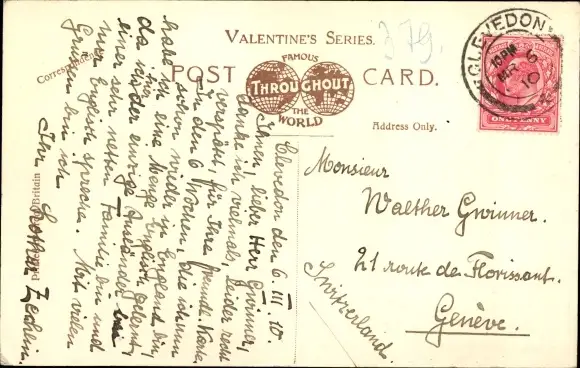 VALENTINE'S SERIES.
379.
POST CARD.
FAMOUS
THROUGHOUT
THE
WORLD
Address Only.
CLEVEDON
MR 6
10
ONE PENNY
Clevedon den 6. III. 10.
Ihnen, lieber Herr Gwinner,
danke ich vielmals, leider recht
verspätet, für Ihre freundl. Karte.
In den 6 Wochen, die ich nun
schon wieder in England bin,
habe ich eine Menge Englisch gelernt,
da ich der einzige Ausländer bei
einer sehr netten Familie bin und
nur Englisch spreche. Mit vielen
Grüssen bin ich
Ihr Lothar Zechlin.
Monsieur
Walther Gwinner.
21 route de Florissant.
Genève.
Switzerland.